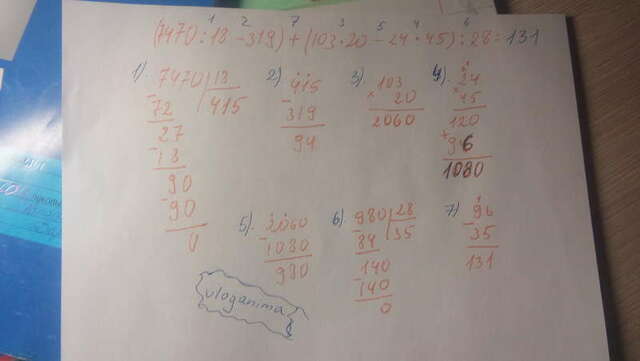 1 2 7 3 5 4 6
(7470:18-319)+(103·20-24·45):28=131
1). 7470 18
415
-72
27
-18
90
-90
0
2). 415
-319
94
3). 103
× 20
2060
4). 24
×45
120
+96
1080
5). 2060
-1080
980
6). 980 28
35
-84
140
-140
0
7). 96
35
131
vloganima